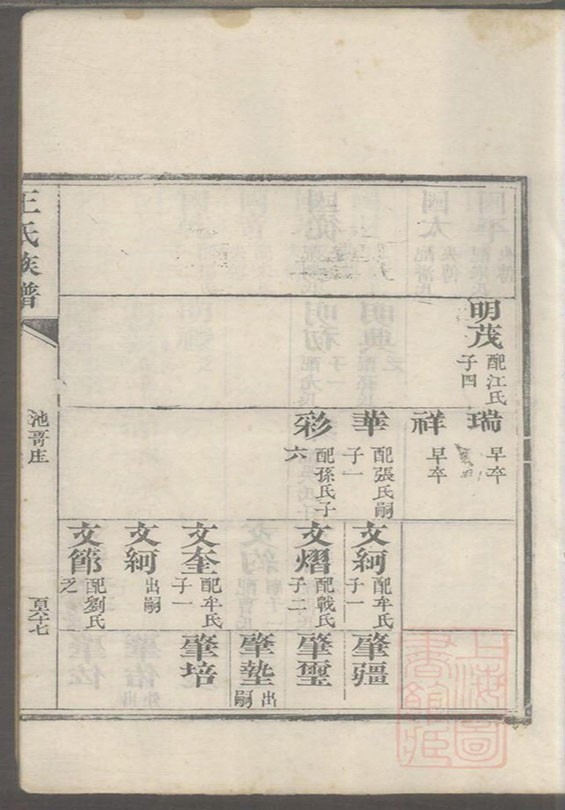 王氏族譜
池哥庄
頁六十七
明茂
配江氏
子四
瑞
早卒
祥
早卒
華
配張氏嗣
子一
彩
配孫氏子
六
文炣
配牟氏
子一
文熠
配戰氏
子二
文奎
配牟氏
子一
文炣
出嗣
文節
配劉氏
之
肇疆
肇璽
肇墊
出嗣
肇培
上海圖書館藏